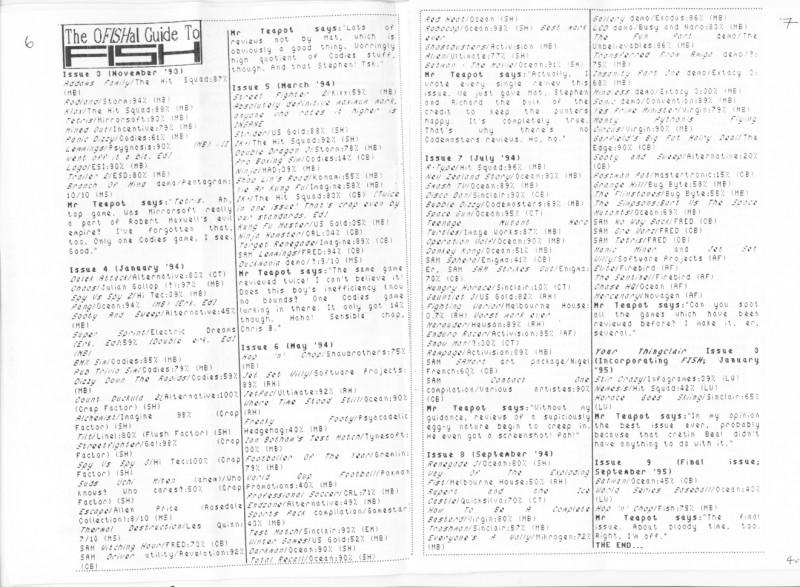 6
The OFISHal Guide To
FISH
Issue 3 (November '93)
Addams Family/The Hit Squad:87%
(MB)
Rodland/Storm:94% (MB)
Klax/The Hit Squad:88% (MB)
Tetris/Mirrorsoft:93% (MB)
Mined Out/Incentive:79% (MB)
Panic Dizzy/Codies:61% (MB)
Lemmings/Psygnosis:90% (MB -
went off it a bit. Ed)
Logo/ESI:90% (MB)
Trailer 2/ESD:80% (MB)
Branch Of Mind demo/Pentagram:
10/10 (MS)
Mr Teapot says:"Tetris. Ah,
top game. Was Mirrorsoft really
a part of Robert Maxwell's evil
empire? I've forgotten that,
too. Only one Codies game, I see.
Good."
Issue 4 (January '94)
Dalek Attack/Alternative:80% (CT)
Chaos/Julian Gollop (?):97% (MB)
Spy Vs Spy 2/Hi Tec:89% (MB)
Pang/Ocean:94% (MB)
Sooty And Sweep/Alternative:45%
(MB)
Super Sprint/Electric Dreams
(MB)
BMX Sim/Codies:85% (MB)
Pub Trivia Sim/Codies:79% (MB)
Dizzy Down The Rapids/Codies:59%
(MB)
Count Duckula 2/Alternative:100%
(Crap Factor) (SH)
Alchemist/Imagine 98% (Crap
Factor) (SH)
Tilt/Linel:80% (Flush Factor) (SH)
Streetfighter/Go!:98% (Crap
Factor) (SH)
Spy Vs Spy 3/Hi Tec:100% (Crap
Factor) (SH)
Suds Uchi Miten (ahem)/Who
knows? Who cares?:50% (Crap
Factor) (SH)
Escape/Allen Price (Rosedale
Collection):8/10 (MS)
Thermal Destruction/Les Quinn:
7/10 (MS)
SAM Witching Hour/FRED:70% (CB)
SAM Driver utility/Revelation:92%
(CB)
Mr Teapot says:"Lots of
reviews not by Mat, which is
obviously a good thing. Worringly
high quotient of Codies stuff,
though. And that Stephen! Tsk."
Issue 5 (March '94)
Street Fighter 2/Kixx:59%
Absolutely definitive maximum mark,
anyone who rates it higher is
INSANE
Strider/US Gold:88% (SH)
IK+/The Hit Squad:92% (SH)
Double Dragon 3/Storm:78% (MB)
Pro Boxing Sim/Codies:14% (CB)
Ninja/MAD:39% (MB)
Shao Lin's Road/Konami:55% (MB)
Yie Ar Kung Fu/Imagine:58% (MB)
IK+/The Hit Squad:80% (CB) (Twice
in one issue! That's crap even by
our standards. Ed)
Kung Fu Master/US Gold:35% (MB)
Ninja Hamster/CRL:24% (CB)
Target Renegade/Imagine:89% (CB)
SAM Lemmings/FRED:94% (CB)
Duckmania demo/?:9/10 (MS)
Mr Teapot says:"The same game
reviewed twice! I can't believe it!
Does this boy's inefficiency know
no bounds? One Codies game
lurking in there. It only got 14%
though. Haha! Sensible chap,
Chris B."
Issue 6 (May '94)
Hop 'n' Chop/Shawbrothers:75%
(MB)
Jet Set Willy/Software Projects:
89% (RH)
JetPac/Ultimate:92% (RH)
Where Time Stood Still/Ocean:90%
(RH)
Freaky Footy/Psycadelic
Hedgehog:40% (MB)
Ian Botham's Test Match/Tynesoft:
00% (MB)
Footballer Of The Year/Gremlin:
79% (MB)
World Cup Football/Paxman
Promotions:40% (MB)
Professional Soccer/CRL:71% (MB)
Endzone/Alternative:49% (MB)
Sports Pack compilation/Gamestar
40% (MB)
Test Match/Sinclair:90% (EH)
Winter Games/US Gold:52% (MB)
Darkman/Ocean:90% (SH)
Total Recall/Ocean:90% (SH)
Red Heat/Ocean (SH)
Robocop/Ocean:98% (SH) Best mark
ever
Ghostbusters/Activision (MB)
Alien/Ultimate:77% (SH)
Batman - The Movie/Ocean:91% (SH)
Mr Teapot says:"Actually, I
wrote every single review this
issue. We just gave Mat, Stephen
and Richard the bulk of the
credit to keep the punters
happy. It's completely true.
That's why there's no
Codemasters reviews. Ho, ho."
Issue 7 (July '94)
R-Type/Hit Squad:96% (MB)
New Zealand Story/Ocean:90% (MB)
Smash TV/Ocean:89% (MB)
Disco Dan/Sinclair:90% (CB)
Bubble Dizzy/Codemasters:69% (MB)
Space Gun/Ocean:95% (CT)
Teenage Mutant Hero
Turtles/Image Works:87% (MB)
Operation Wolf/Ocean:90% (MB)
Donkey Kong/Ocean:51% (MB)
SAM Sphera/Enigma:41% (CB)
Er, SAM SAM Strikes Out/Enigma:
70% (CB)
Hungry Horace/Sinclair:10% (CT)
Gauntlet 2/US Gold:82% (RH)
Fighting Warrior/Melbourne House:
0.7% (RH) Worst mark ever
Marauder/Hewson:89% (RH)
Enduro Racer/Activision:95% (AF)
Snow Man/?:00% (CT)
Rampage/Activision:89% (MB)
SAM SAMart art package/Nigel
French:60% (CB)
SAM Contact One
compilation/Various artistes:90%
(CB)
Mr Teapot says:"Without my
guidance, reviews of a supiciously
egg-y nature begin to creep in.
He even got a screenshot! Pah!"
Issue 8 (September '94)
Renegade 3/Ocean:80% (SH)
Way Of The Exploding
Fist/Melbourne House:50% (RH)
Rupert and the Ice
Castle/Quicksilva:70% (CT)
How To Be A Complete
Bastard/Virgin:80% (MB)
Trashman/Sinclair:57% (MB)
Everyone's A Wally/Mikrogen:72%
(MB)
7
Gallery demo/Exodus:86% (MB)
LCD demo/Busy and Noro:83% (MB)
The Fun Part demo/The
Unbelievables:86% (MB)
Transferred From Amiga demo/?:
75% (MB)
Insanity Part One demo/Extacy 0:
68% (MB)
Mindless demo/Extacy 0:00% (MB)
Sonic demo/Convention:89% (MB)
Yes Prime Minister/Virgin:79% (MB)
Monty Python's Flying
Circus/Virgin:90% (MB)
Garfield's Big Fat Hairy Deal/The
Edge:90% (CB)
Sooty and Sweep/Alternative:20%
(CB)
Postman Pat/Mastertronic:15% (CB)
Grange Hill/Bug Byte:50% (MB)
The Flintstones/Bug Byte:58% (MB)
The Simpsons:Bart Vs The Space
Mutants/Ocean:69% (MB)
SAM No Way Back/FRED (CB)
SAM Ore Ward/FRED (CB)
SAM Tetris/FRED (CB)
Manic Miner and Jet Set
Willy/Software Projects (AF)
Elite/Firebird (AF)
The Sentinel/Firebird (AF)
Chase HQ/Ocean (AF)
Mercenary/Novagen (AF)
Mr Teapot says:"Can you spot
all the games which have been
reviewed before? I make it, er,
several."
Your Thingclair Issue 0
(Incorporating FISH; January
'95)
Stir Crazy/Infogrames:39% (LU)
Nemesis/Hit Squad:42% (LU)
Horace Goes Skiing/Sinclair:65%
(LU)
Mr Teapot says:"In my opinion
the best issue ever, probably
because that cretin Beal didn't
have anything to do with it."
Issue 9 (Final issue;
September '95)
Batman/Ocean:45% (CB)
World Series Baseball/Ocean:40%
(LU)
Hop 'n' Chop/Fish:75% (MB)
Mr Teapot says:"The final
issue. About bloody time, too.
Right, I'm off."
THE END...